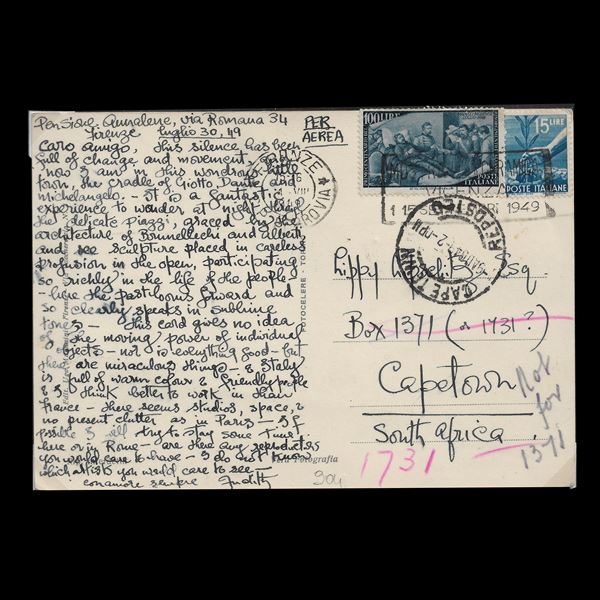 Pensione Annalena, via Romana 34
Firenze luglio 30, 49
PER
AEREA
Caro amigo, This silence has been
full of change and movement, and
now I am in this wondrous little
town, the cradle of Giotto, Dante and
Michelangelo. - it is a fantastic
experience to wonder at night thru
the delicate piazzi, graced by the
architecture of Brunellechi and Alberti,
and see sculpture placed in careless
profusion in the open, participating
so richly in the life of the people
- here the past looms forward and
so clearly speaks in sublime
tone
- This card gives no idea
of the moving power of individual
objects - not is everything good - but
there are miraculous things - & Italy
is full of warm colour & friendly people
& I think better to work in than
France - there seems studios, space, &
no present clutter as in Paris - If
possible I will try to stay some time
here or in Rome - are there any reproductions
you would care to have - I do not know
which artists you would care to see -
con amore sempre Judith
FIRENZE
FERROVIA
100 LIRE
POSTE ITALIANE
15 LIRE
POSTE ITALIANE
VICENZA
1 15 SETTEMBRE 1949
CAPE TOWN
REPOSTED
Lippy Lipschitz Esq.
Box 1371 (or 1731?)
Capetown
South Africa
1731
Not
for
1371
FOTOCELERE - TORINO
Vera Fotografia
304